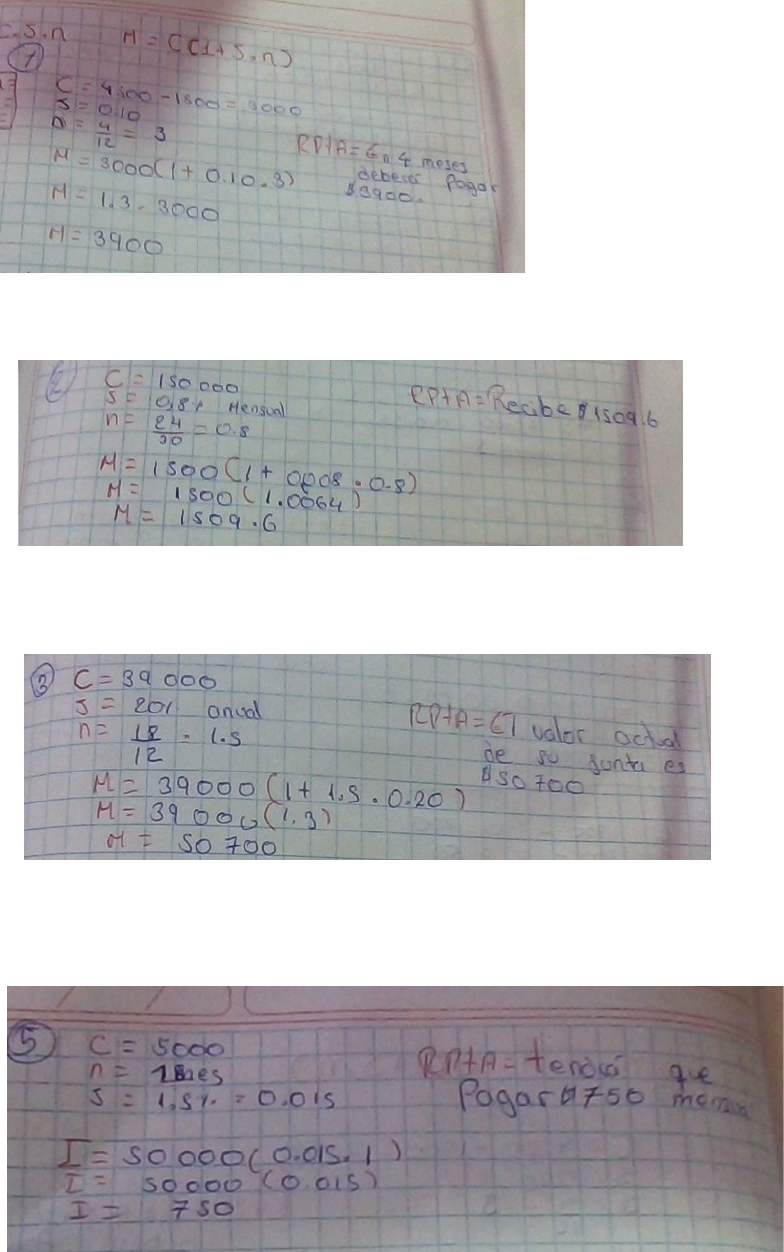 C.S.n M = C(1+S.n)
1
C = 4500 - 1500 = 3000
S = 0.10
n = 4/12 = 3
M = 3000(1 + 0.10.3)
M = 1.3. 3000
M = 3900
RPtA = En 4 meses
deberá Pagar
$3900.
2
C = 150 000
S = 0,8% Mensual
n = 24/30 = 0.8
M = 1500(1 + 0.008 . 0.8)
M = 1500(1.0064)
M = 1509.6
RPtA = Recibe $1509.6
3
C = 39 000
S = 20% anual
n = 18/12 = 1.5
M = 39000(1 + 1.5 . 0.20)
M = 39 000(1.3)
M = 50 700
RPtA = El valor actual
de su junta es
$50700
5
C = 5000
n = 1 mes
S = 1,5% = 0.015
I = 50 000(0.015.1)
I = 50000(0.015)
I = 750
RPtA = tendrá que
Pagar $750